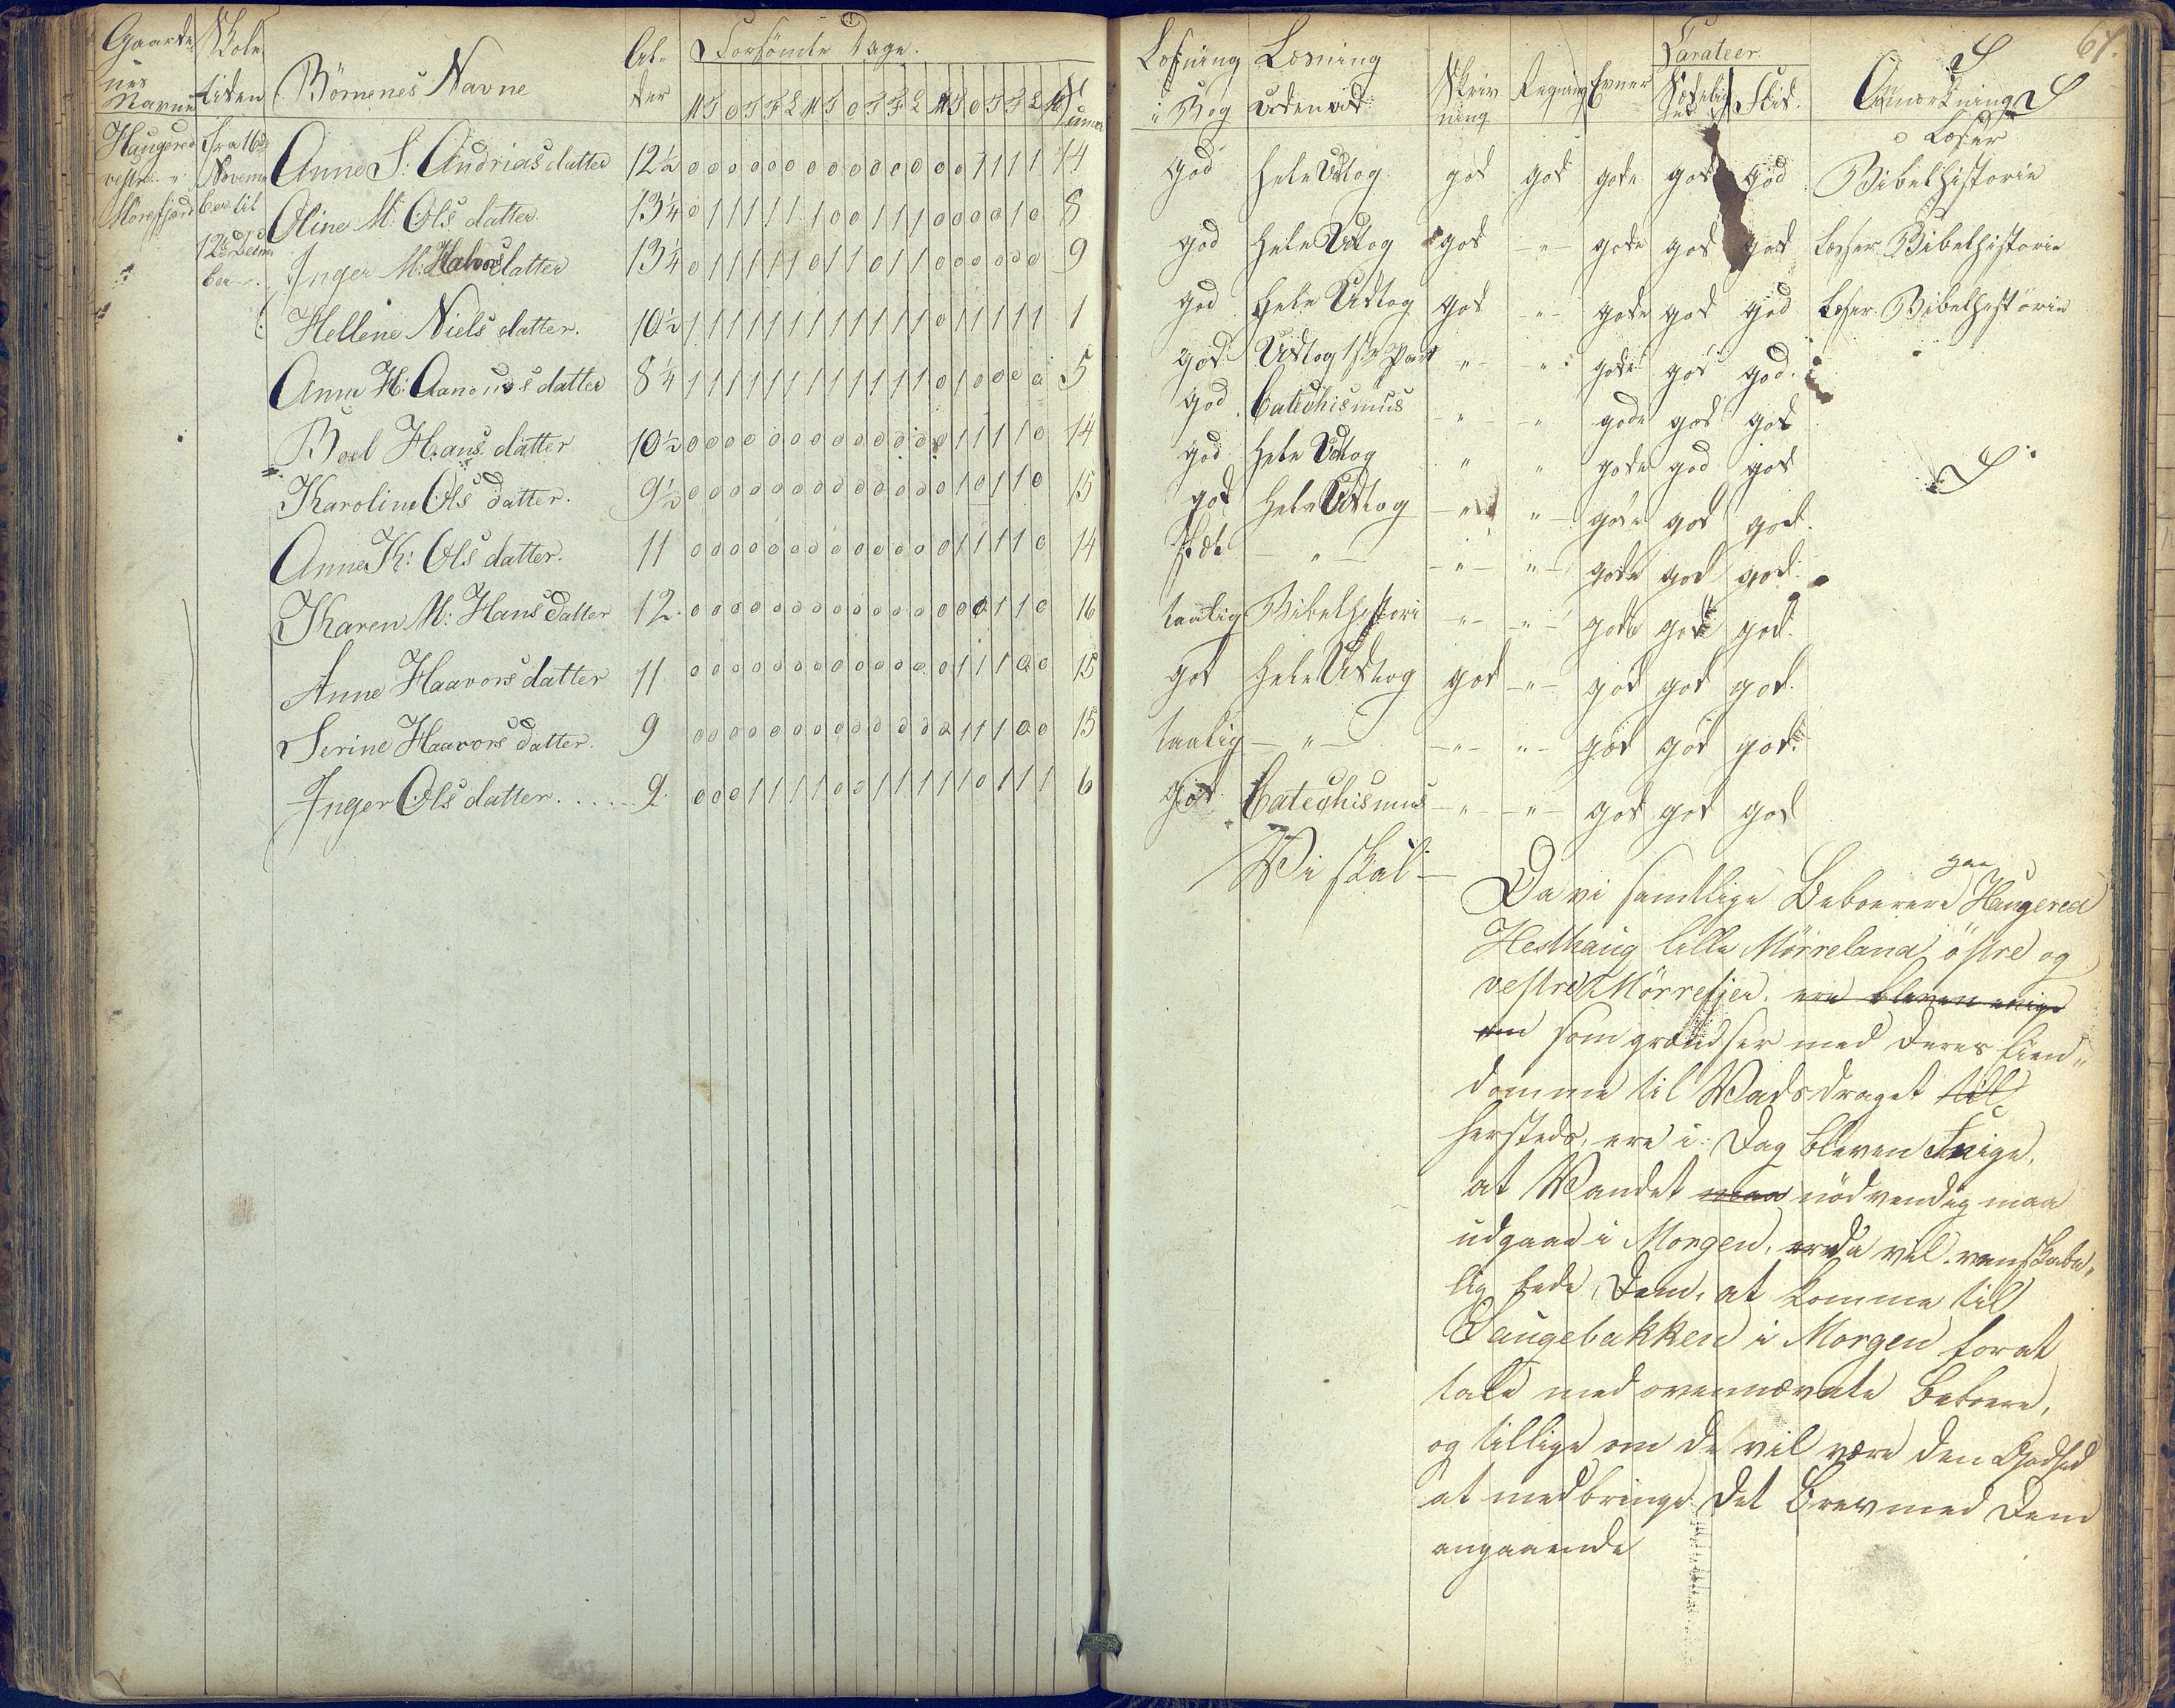 67.
Gaarde- Skole- Börnenes Navne Al- Forsömte Dage.
nes tiden der M T O T F L M T O T F L M T O T F L
Navne
Haugered Fra 16de Anne S. Andrias datter 12½ 0 0 0 0 0 0 0 0 0 0 0 0 0 0 1 1 1 1 14
vestre Novem Oline M: Ols datter. 13¼ 0 1 1 1 1 1 1 0 0 1 1 1 0 0 0 0 1 0 8
Mörefjær ber til Inger M: Halvors datter 13¼ 0 1 1 1 1 1 0 1 1 0 1 1 0 0 0 0 0 0 9
12te Decem
ber
Hellene Niels datter. 10½ 1 1 1 1 1 1 1 1 1 1 1 1 0 1 1 1 1 1 1
Anne H: datter 8¼ 1 1 1 1 1 1 1 1 1 1 1 1 0 1 0 0 0 0 5
Boel Hans datter 10½ 0 0 0 0 0 0 0 0 0 0 0 0 0 1 1 1 1 0 14
Karoline Ols datter. 9½ 0 0 0 0 0 0 0 0 0 0 0 0 0 1 0 1 1 0 15
Anne K: Ols datter. 11 0 0 0 0 0 0 0 0 0 0 0 0 0 1 1 1 1 0 14
Karen M: Hans datter 12. 0 0 0 0 0 0 0 0 0 0 0 0 0 0 0 1 1 0 16
Anne Haavors datter 11 0 0 0 0 0 0 0 0 0 0 0 0 0 1 1 1 0 0 15
Serine Haavors datter. 9 0 0 0 0 0 0 0 0 0 0 0 0 0 1 1 1 0 0 15
Inger Ols datter. . . . . . 9. 0 0 0 1 1 1 1 0 0 1 1 1 1 1 0 1 1 1 6
Læsning Læsning Skriv Regning Evner Carateer Anmærkning
i Bog udenad ning Sædelig Flid.
hed
god hele Udtog. god god gode god god Læser Bibelhistorie
god hele Udtog god -"- gode god god Læser Bibelhistorie
god hele Udtog god -"- gode god god Læser Bibelhistorie
god Udtog 1ste Part -"- " gode god god.
god Catechismus " " gode god god
god hele Udtog " " gode god god
god hele Udtog -"- " gode god god.
slet -"- -"- -"- gode god god.
taalig Bibelhistori -"- -"- gode gode god.
god hele Udtog god -"- god god god.
taalig -"- -"- -"- god god god.
god Catechismus -"- -"- god god god
Vi skal-
Da vi samtlige Beboerere paa Haugered
Hesthaug lille Mörreland östre og
vestre Mörrefjer. ere bleven enige
om som grændser med deres Eien-
domme til Vadsdraget til
hersteds, ere i Dag bleven Enige,
at Vandet maa nödvendig maa
udgaae i Morgen, vil venskabe-
lig bede, Dem, at komme til
Laugebakken i Morgen forat
tale med ovennævnte Beboere,
og tillige om de vil være den Godhed
at medbringe det Brev med Dem
angaaende